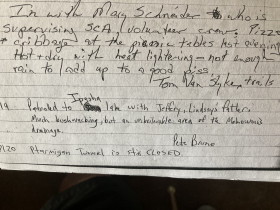 In with Mary Schneider who is
supervising SCA volunteer crew. Pizza
+ cribbage at the picnic tables last evening
Hot + dry with heat lightening - not enough
rain to add up to a good piss.
Tom Van Syke, trails
Ipasha
19 Patrolled to Lake with Jeffery, Lindsey's Father.
Much bushwhacking, but an unbelievable area of the Mokowanis
drainage.
Pete Bruno
7/20 Ptarmigan Tunnel is still CLOSED.